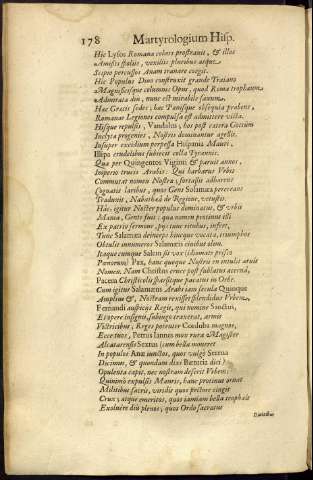 178 Martyrologium Hisp.
Hic Lysos Romana cohors prostrauit, & illos
Amissis spolijs, vexillis pluribus atque
Scipio percussos Anam tranare coegit.
Hic Populus Diuo construxit grande Traiano
Magnificisque columnis Opus, quod Roma trophæum
Admirata diu, nunc est mirabile saxum.
Hac Græcis sedes; hac Pœnisque obsequia præbens,
Romanas Legiones compulsa est admittere victa.
Hisque repulsis, Vandalus, hos post cætera Gottûm
Inclyta progenies, Nostris dominantur agellis.
Insuper excidium perpessa Hispania Mauri,
Illipa crudelibus subijcit colla Tyrannis.
Qua per Quingentos Viginti & paruit annos,
Imperio trucis Arabis: Qui barbarus Vrbis
Commutat nomen Nostra; forsitan adhærens
Cognatis laribus, quos Gens Salamæa perercens
Tradunt, Nabathæa de Regione, vetustis.
Hac igitur Noster populus dominatus, & vrbis
Mœnia, Gente sua: qua nomen protinus illi
Ex patrio sermone, positum ritibus, infert,
Tunc Salamæa deinceps hucque vocata, triumphos
Obtulit innumeros Salamæis ciuibus olim.
Itaque cumque Salem sit vox (chamate prisco
Pœnorum) Pax, hanc quoque Nostris en intulit atuis
Nomen. Nam Christus cruce post sublatus acerna,
Pacem Christicolis sparsitque pacatus in Orbe.
Cum igitur Salamæam Arabs iam secula Quinque
Amplius &, Nostram rexisset splendidus Vrbem,
Fernandi auspicijs Regis, qui nomine Sanctus,
Et opere insignis, subingo tranerat, armis
Victricibus, Reges potenter Cordubæ magnæ,
Ecce tuos, Petrus Iannes mox rura Magister
Alcatarensis Sextus iam bella moueret
In populos Rocæ iunctos, quos vulgò Sextus
Dicimus, & quondam dives Bæturia dicta
Opulenta capit, nec nostram deserit Vrbem:
Quinimò expulsis Mauris, hanc protinus ornat
Militibus sacris, viridis quos pectore cingit
Crux; atque emeritos, quos iamiam bella trophæis
Exoluere diu plenos, quos Ordo sacratus